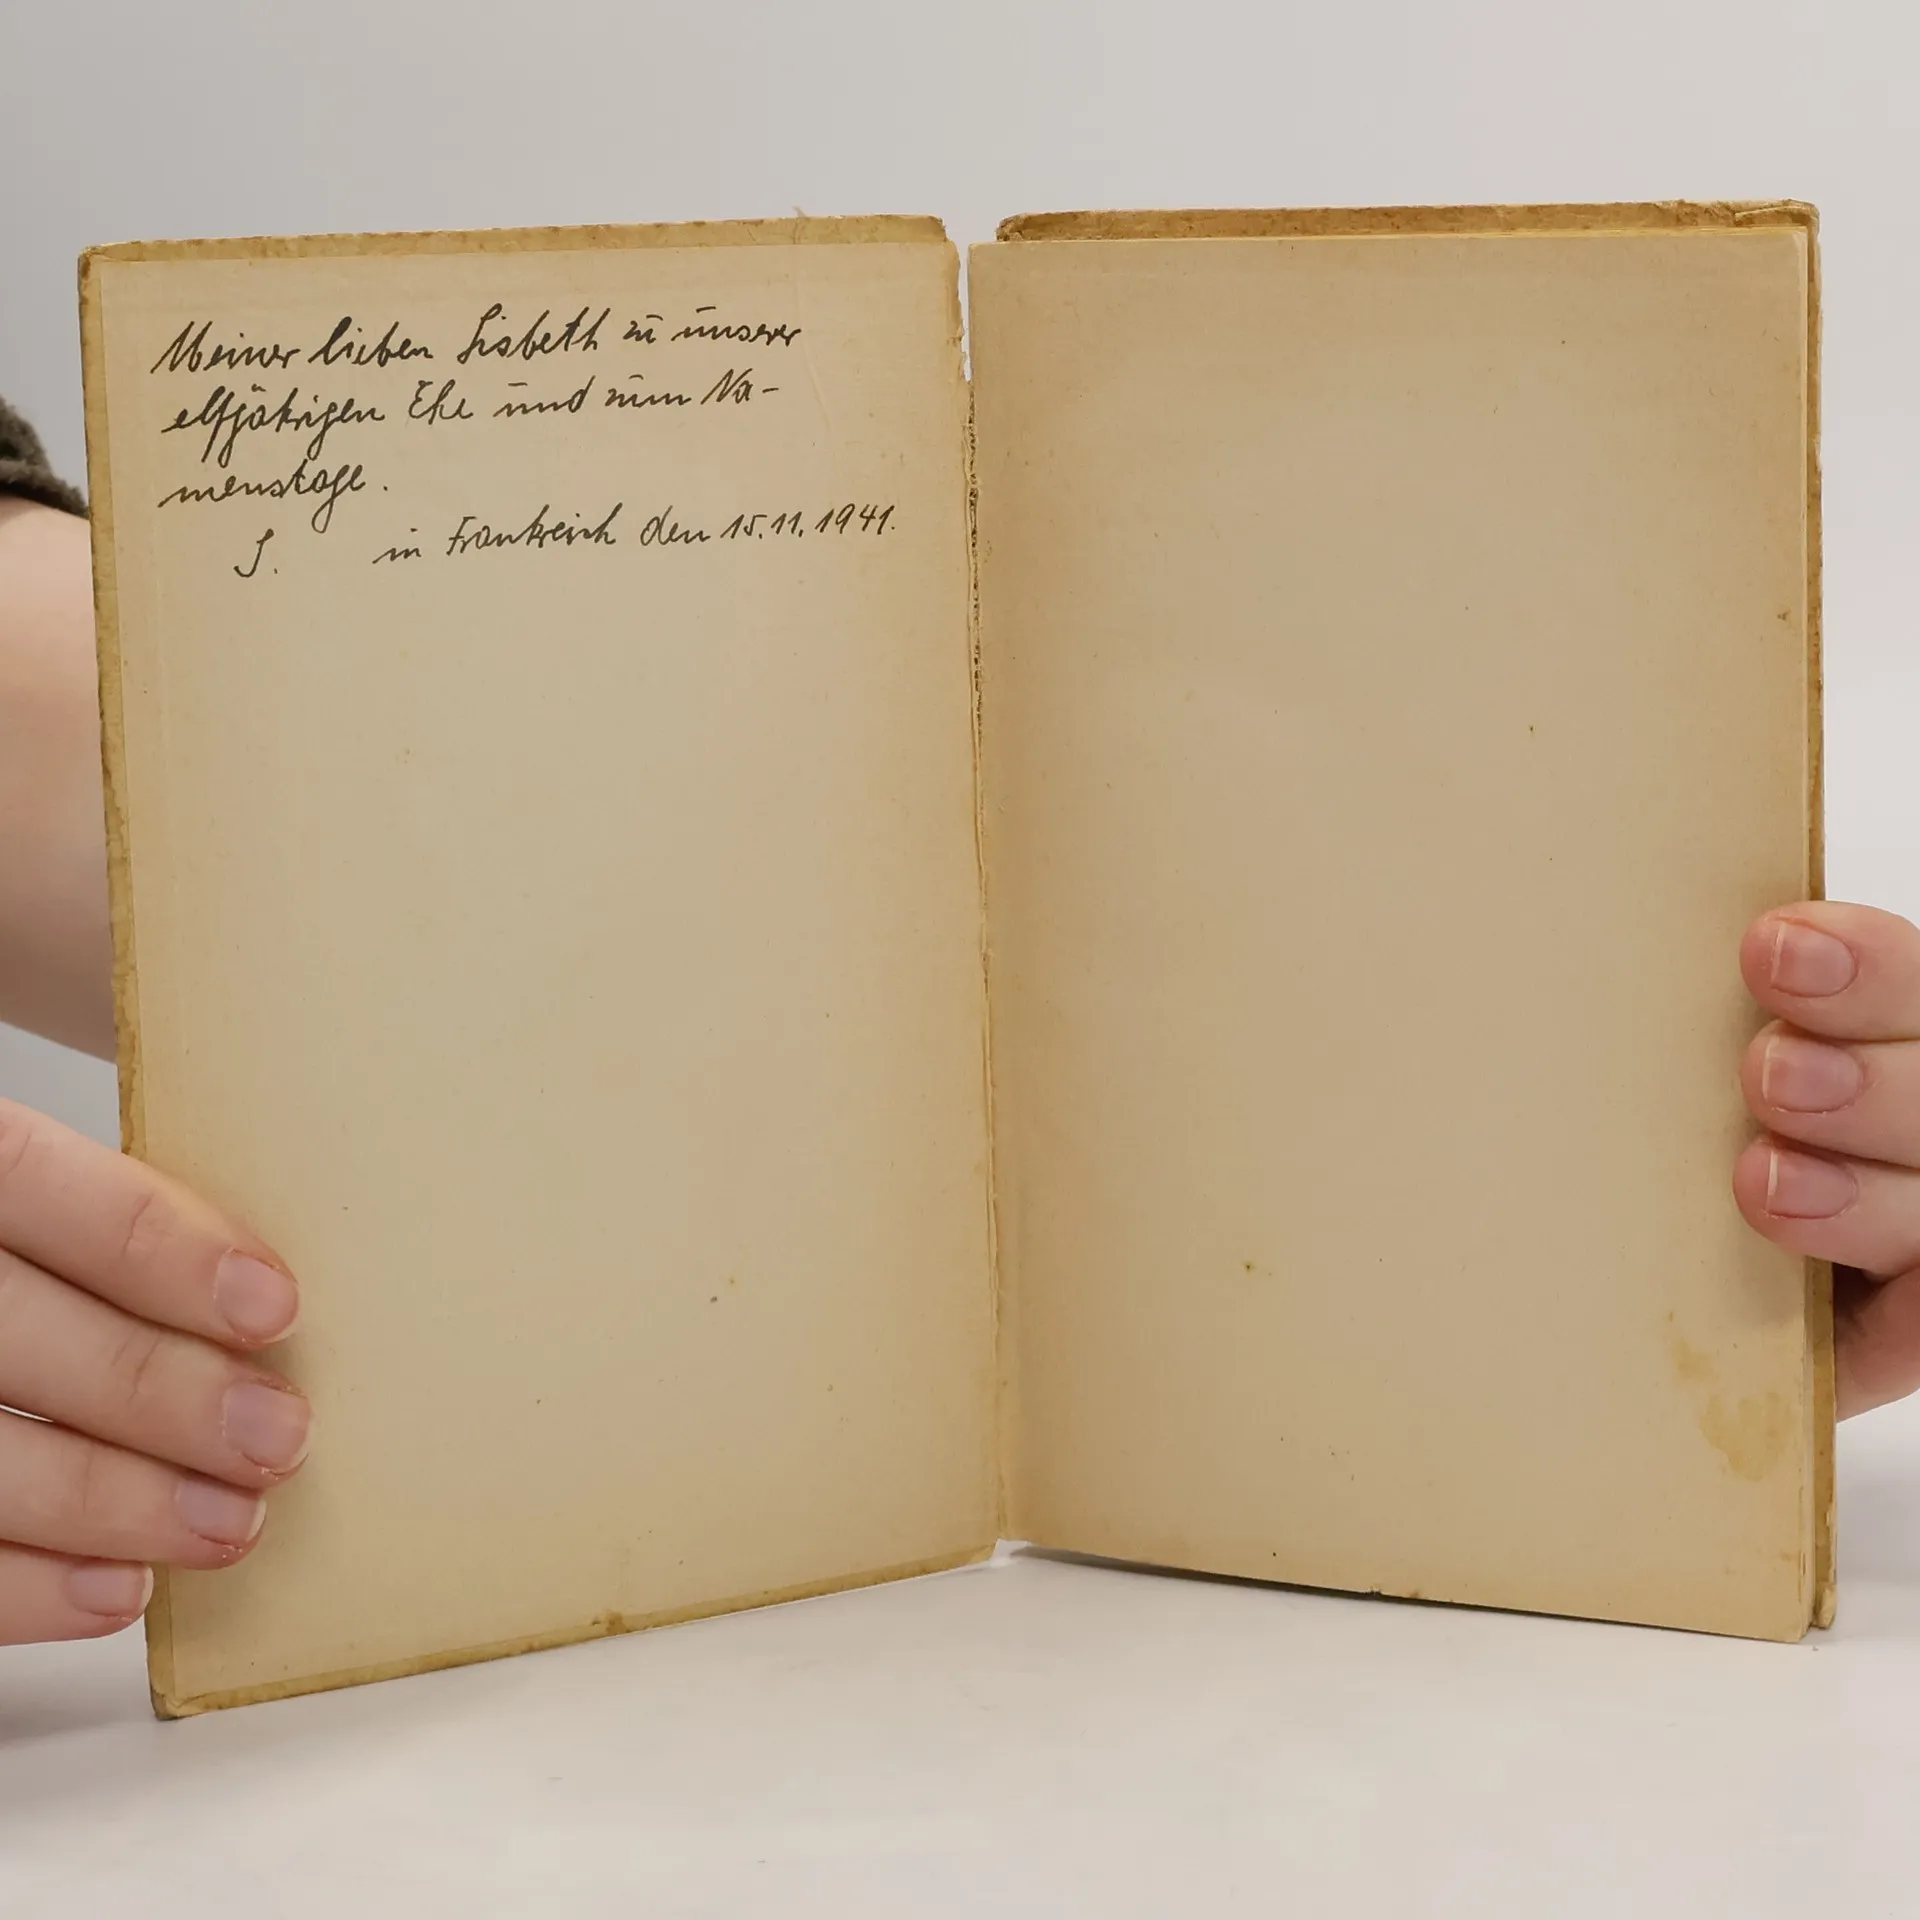 Meiner lieben Lisbeth zu unserer
elfjährigen Ehe und zum Na-
menstage.
J. in Frankreich den 15.11.1941.